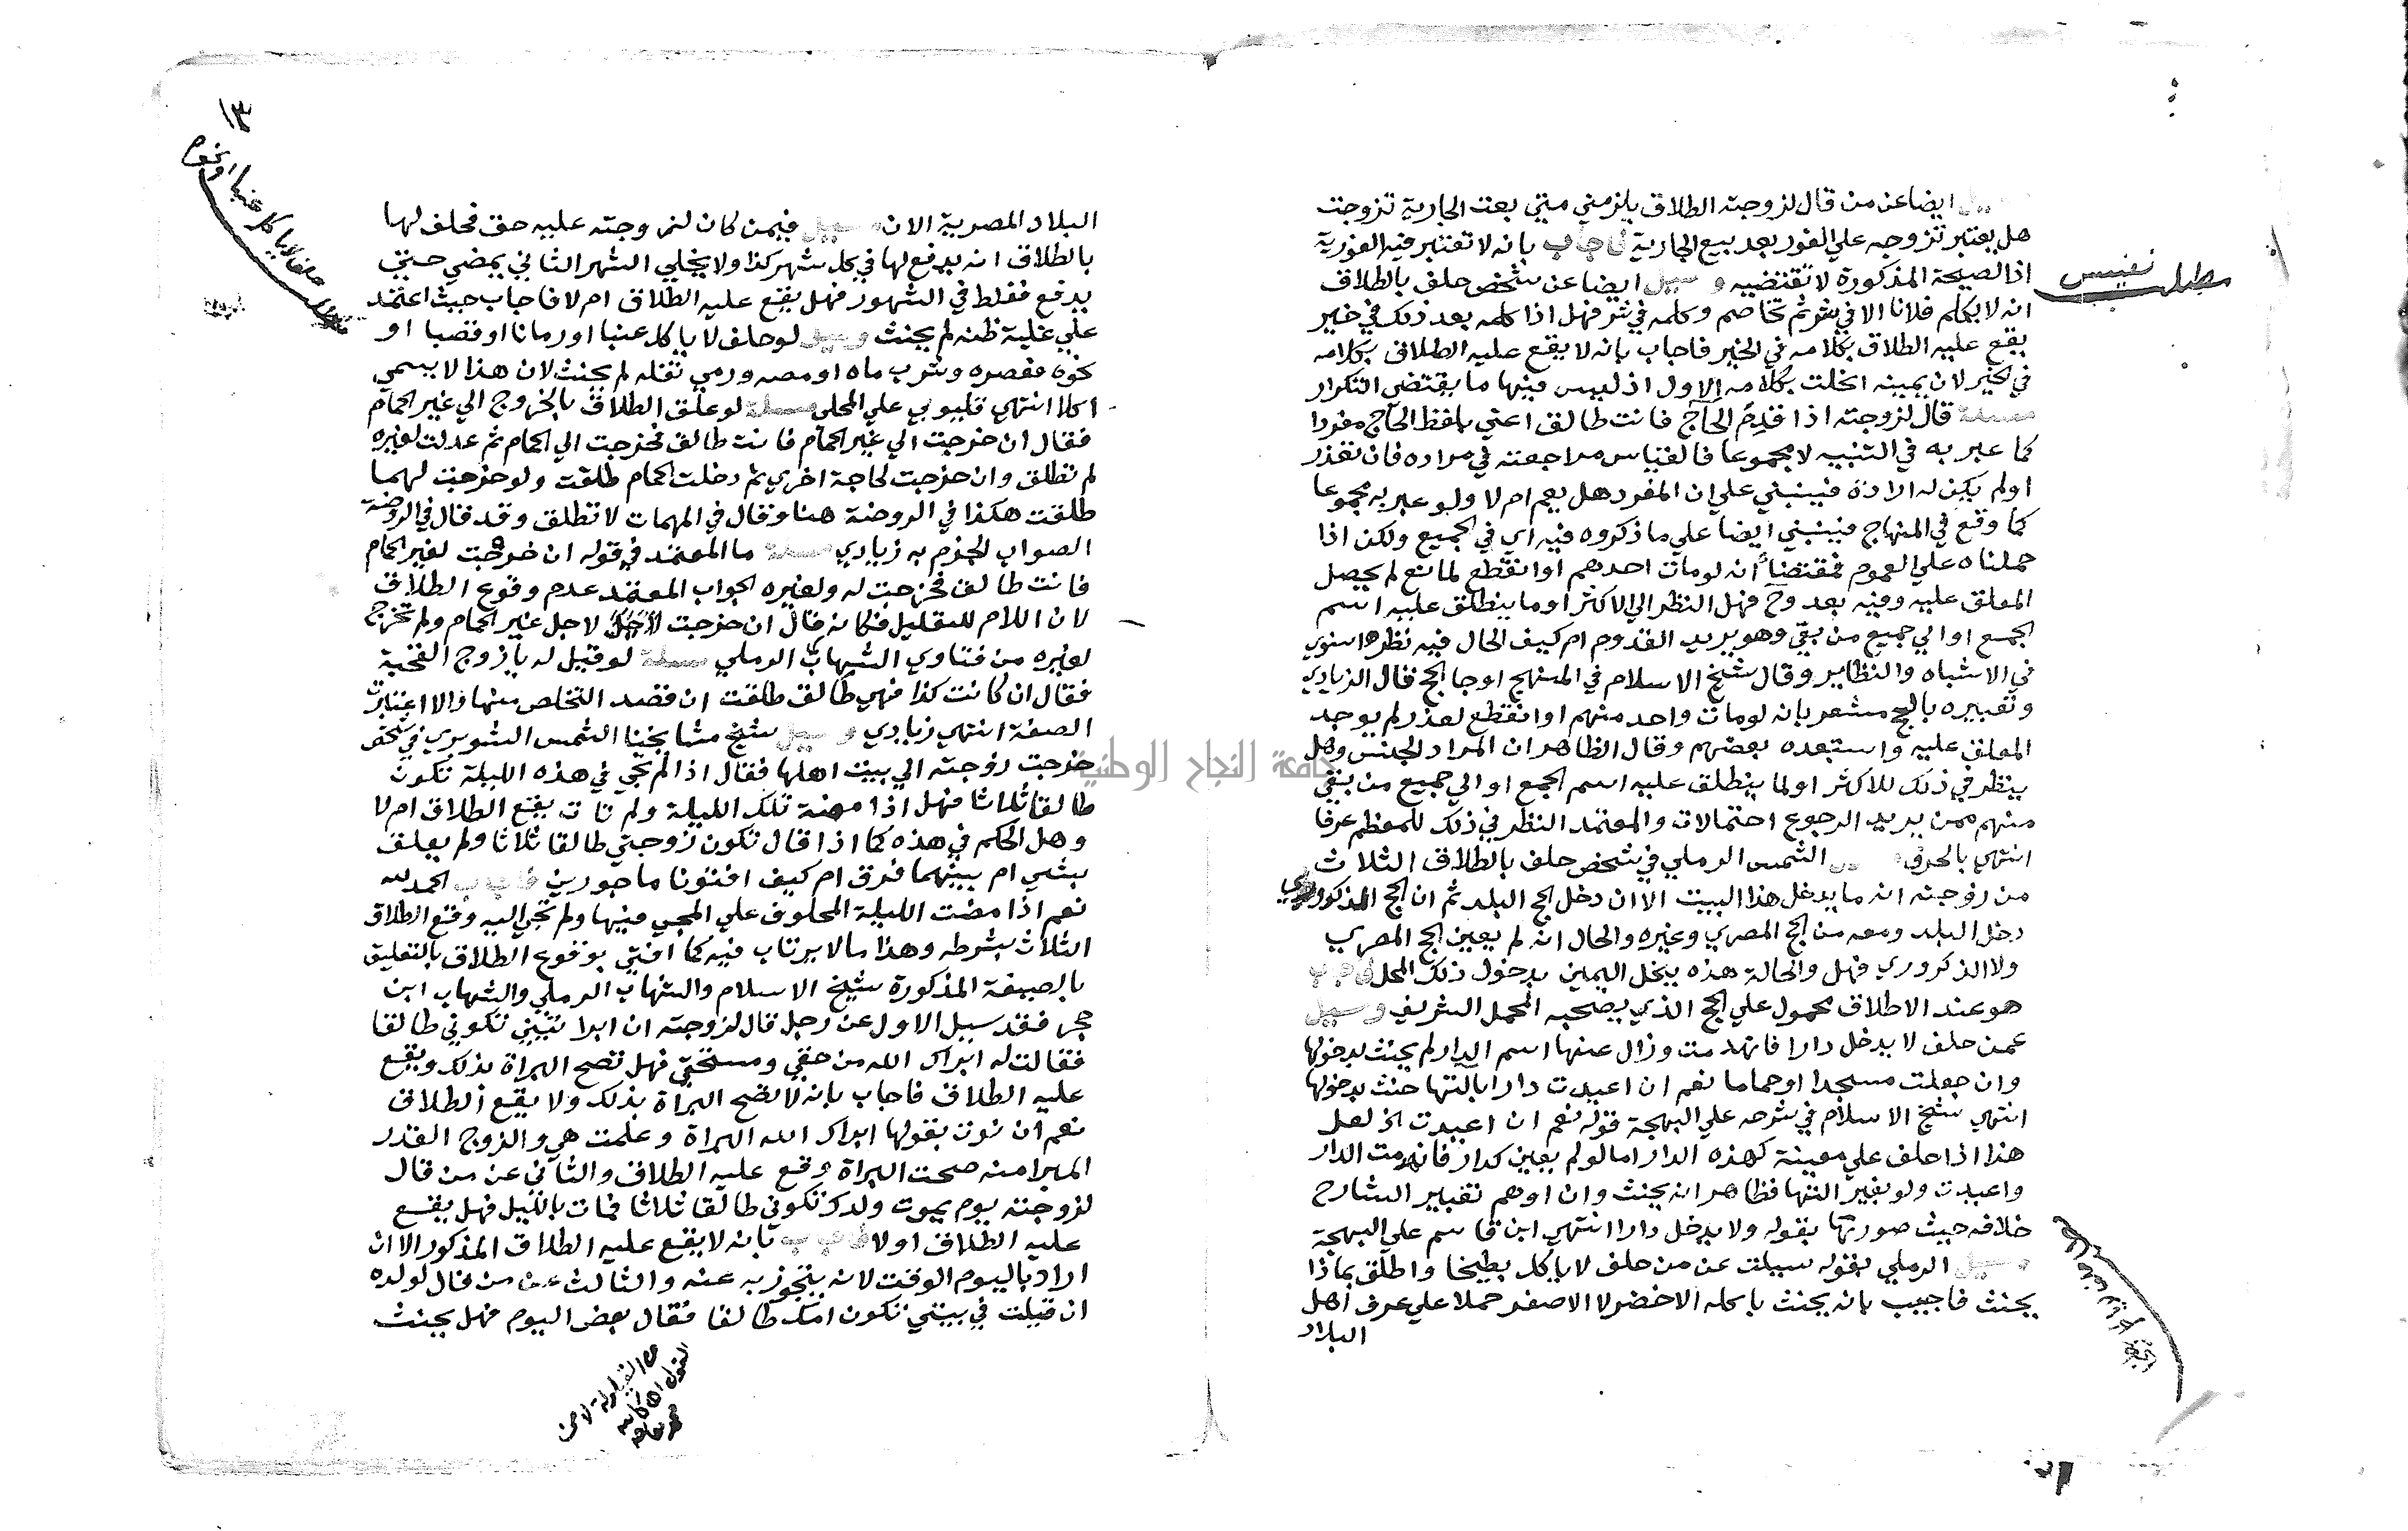 ايضا عن من قال لزوجته الطلاق يلزمني متي بعت الجارية تزوجت
هل يعتبر تزوجه علي الفور بعد بيع الجارية فاجاب بانه لا تعتبر فيه الفورية
اذ الصيحة المذكورة لا تقتضيه وسيل ايضا عن شخص حلف بالطلاق
انه لا يكلم فلانا الا في شر ثم تخاصم وكلمه في شر فهل اذا كلمه بعد ذلك في خير
يقع عليه الطلاق بكلامه في الخير فاجاب بانه لا يقع عليه الطلاق بكلامه
في الخير لان يمينه انحلت بكلامه الاول اذ ليس فيها ما يقتضي التكرار
مسئلة قال لزوجته اذا قدِمَ الحاج فانت طالق اعني بلفظ الحاج مفردا
كما عبر به في التنبيه لا مجموعا فالقياس مراجعته في مراده فان تعذر
او لم يكن له ارادة فينبني علي ان المفرد هل يعم ام لا ولو عبر به مجموعا
كما وقع في المنهاج فينبني ايضا علي ما ذكروه فيه اي في الجميع ولكن اذا
حملناه علي العموم فمقتضاه انه لو مات احدهم او انقطع لمانع لم يحصل
المعلق عليه وفيه بعد وح فهل النظر الي الاكثر او ما ينطلق عليه اسم
الجمع او الي جميع من بقي وهو يريد القدوم ام كيف الحال فيه نظر اسنوي
في الاشباه والنظاير وقال شيخ الاسلام في المنهج او جا الحج قال الزيادي
وتعبيره بالحج مشعر بانه لو مات واحد منهم او انقطع لعذر لم يوجد
المعلق عليه واستبعده بعضهم وقال الظاهر ان المراد الجنس وهل
ينظر في ذلك للاكثر او لما ينطلق عليه اسم الجمع او الي جميع من بقي
منهم ممن يريد الرجوع احتمالات والمعتمد النظر في ذلك للمعظم عرفا
انتهي بالحرف الشمس الرملي في شخص حلف بالطلاق الثلاث
من زوجته انه ما يدخل هذا البيت الا ان دخل الحج البلد ثم ان الحج المذكوروري
دخل البلد ومعه من الحج المصري وغيره والحال انه لم يعين الحج المصري
ولا الذكروري فهل والحالة هذه ينحل اليمين بدخول ذلك المحل فاجاب
هو عند الاطلاق محمول علي الحج الذي يصحبه المحمل الشريف وسيل
عمن حلف لا يدخل دارا فانهدمت وزال عنها اسم الدار لم يحنث بدخولها
وان جعلت مسجدا او حماما نعم ان اعيدت دارا بالتها حنث بدخولها
انتهي شيخ الاسلام في شرحه علي البهجة قوله نعم ان اعيدت الخ لعل
هذا اذا حلف علي معينة كهذه الدار اما لو لم يعين كدار فانهدمت الدار
واعيدت ولو بغير التها فظاهر انه يحنث وان اوهم تعبير الشارح
خلافه حيث صورتها بقوله ولا يدخل دارا انتهي ابن قاسم علي البهجة
وسيل الرملي بقوله سيلت عن من حلف لا ياكل بطيخا واطلق بماذا
يحنث فاجيب بانه يحنث باكله الاخضر لا الاصفر حملا علي عرف اهل
البلاد
مطلب نفيس
١٣
البلاد المصرية الان وسيل فيمن كان لزوجته عليه حق فحلف لها
بالطلاق انه يدفع لها في كل شهر كذا ولا يخلي الشهر الثاني يمضي حتي
يدفع فغلط في الشهور فهل يقع عليه الطلاق ام لا فاجاب حيث اعتمد
علي غلبة ظنه لم يحنث وسيل لو حلف لا ياكل عنبا او رمانا او قصبا او
نحوه فعصره وشرب ماه او مصه ورمي تفله لم يحنث لان هذا لا يسمي
اكلا انتهي قليوبي علي المحلي مسئلة لو علق الطلاق بالخروج الي غير الحمام
فقال ان خرجت الي غير الحمام فانت طالق فخرجت الي الحمام ثم عدلت لغيره
لم تطلق وان خرجت لحاجة اخري ثم دخلت الحمام طلقت ولو خرجت لهما
طلقت هكذا في الروضة هنا وقال في المهمات لا تطلق وقد قال في الروضة
الصواب الجزم به زيادي مسئلة ما المعتمد في قوله ان خرجت لغير الحمام
فانت طالق فخرجت له ولغيره الجواب المعتمد عدم وقوع الطلاق
لان اللام للتعليل فكانه قال ان خرجت لاجل غير الحمام ولم تخرج
لغيره من فتاوي الشهاب الرملي مسئلة لو قيل له يا زوج القحبة
فقال ان كانت كذا فهي طالق طلقت ان قصد التخلص منها والا اعتبرت
الصفة انتهي زيادي وسيل شيخ مشايخنا الشمس الشوبري في شخص
خرجت زوجته الي بيت اهلها فقال اذا لم تجي في هذه الليلة تكون
طالقا ثلاثا فهل اذا مضت تلك الليلة ولم تات يقع الطلاق ام لا
وهل الحكم في هذه كما اذا قال تكون زوجتي طالقا ثلاثا ولم يعلق
بشي ام بينهما فرق ام كيف افتونا ماجورين فاجاب الحمد لله
نعم اذا مضت الليلة المحلوف علي المجي فيها ولم تجي اليه وقع الطلاق
الثلاث بشرطه وهذا مما لا يرتاب فيه كما افتي بوقوع الطلاق بالتعليق
بالصيغة المذكورة شيخ الاسلام والشهاب الرملي والشهاب ابن
حجر فقد سيل الاول عن رجل قال لزوجته ان ابراتيني تكوني طالقا
فقالت له ابراك الله من حقي ومستحقي فهل تصح البراة بذلك ويقع
عليه الطلاق فاجاب بانه لا تصح البراة بذلك ولا يقع الطلاق
نعم ان نوت بقولها ابراك الله البراة وعلمت هي والزوج القدر
المبرا منه صحت البراة وقع عليه الطلاق والثاني عن من قال
لزوجته يوم يموت ولدك تكوني طالقا ثلاثا فمات بالليل فهل يقع
عليه الطلاق اولا فاجاب بانه لا يقع عليه الطلاق المذكور الا ان
اراد باليوم الوقت لانه يتجوز به عنه والثالث عن من قال لولده
ان قيلت في بيتي تكون امك طالقا فقال بعض اليوم فهل يحنث
جامعة النجاح الوطنية